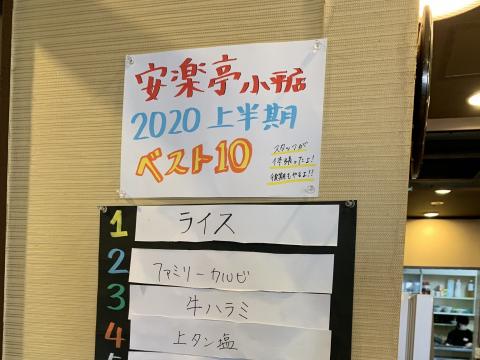 安楽亭小平店
2020 上半期
ベスト10
スタッフが
体張ったよ!
後期もやるよ!!
1 ライス
2 ファミリーカルビ
3 牛ハラミ
4 上タン塩